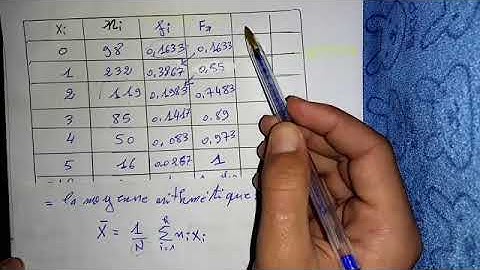 xi ni fi F↗
0 98 0,1633 0,1633
1 232 0,3867 0,55
2 119 0,1983 0,7483
3 85 0,1417 0,89
4 50 0,083 0,973
5 16 0,0267 1
= la moyenne arithmétique:
X̄ = 1/N Σ i=1 k ni xi